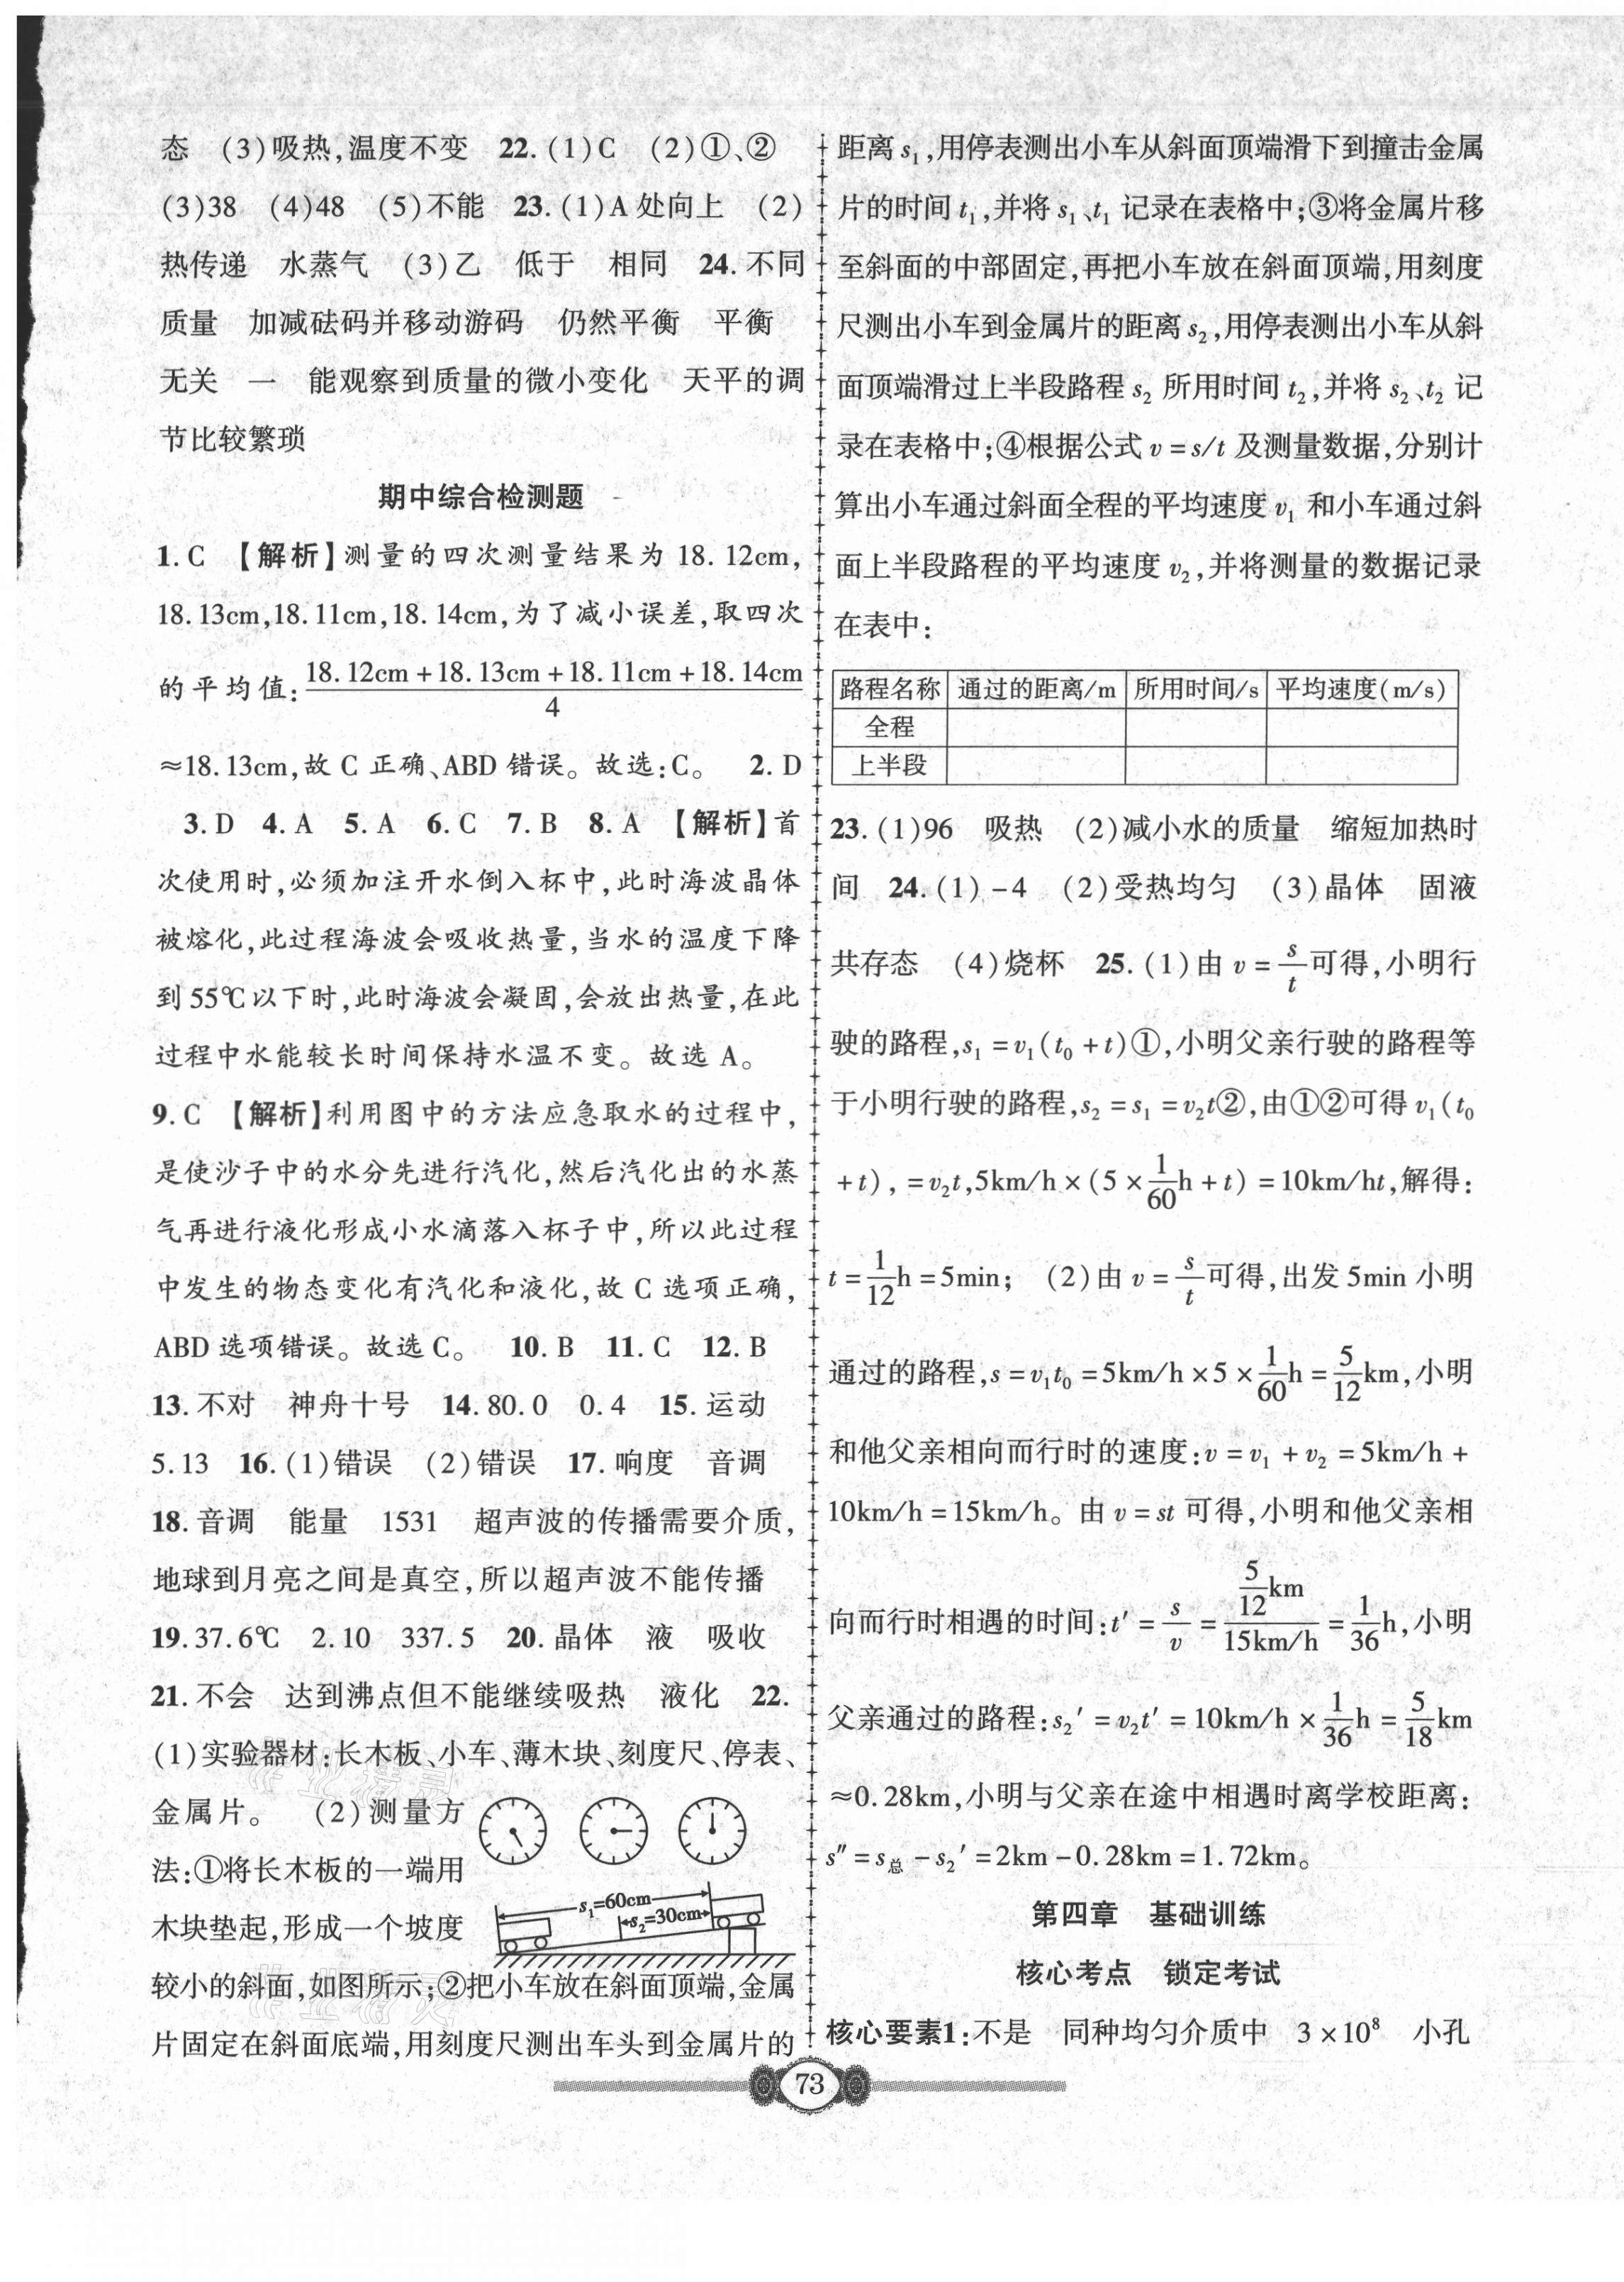 态　(3)吸热,温度不变　22.(1)C　(2)①、②
(3)38　(4)48　(5)不能　23.(1)A处向上　(2)
热传递　水蒸气　(3)乙　低于　相同　24.不同
质量　加减砝码并移动游码　仍然平衡　平衡
无关　一　能观察到质量的微小变化　天平的调
节比较繁琐
期中综合检测题
1.C　【解析】测量的四次测量结果为18.12cm,
18.13cm,18.11cm,18.14cm,为了减小误差,取四次
的平均值:(18.12cm+18.13cm+18.11cm+18.14cm)/4
≈18.13cm,故C正确、ABD错误。故选:C。　2.D
3.D　4.A　5.A　6.C　7.B　8.A　【解析】首
次使用时,必须加注开水倒入杯中,此时海波晶体
被熔化,此过程海波会吸收热量,当水的温度下降
到55℃以下时,此时海波会凝固,会放出热量,在此
过程中水能较长时间保持水温不变。故选A。
9.C　【解析】利用图中的方法应急取水的过程中,
是使沙子中的水分先进行汽化,然后汽化出的水蒸
气再进行液化形成小水滴落入杯子中,所以此过程
中发生的物态变化有汽化和液化,故C选项正确,
ABD选项错误。故选C。　10.B　11.C　12.B
13.不对　神舟十号　14.80.0　0.4　15.运动
5.13　16.(1)错误　(2)错误　17.响度　音调
18.音调　能量　1531　超声波的传播需要介质,
地球到月亮之间是真空,所以超声波不能传播
19.37.6℃　2.10　337.5　20.晶体　液　吸收
21.不会　达到沸点但不能继续吸热　液化　22.
(1)实验器材:长木板、小车、薄木块、刻度尺、停表、
金属片。　(2)测量方
法:①将长木板的一端用
木块垫起,形成一个坡度
s₁=60cm
s₂=30cm
较小的斜面,如图所示;②把小车放在斜面顶端,金属
片固定在斜面底端,用刻度尺测出车头到金属片的
距离s₁,用停表测出小车从斜面顶端滑下到撞击金属
片的时间t₁,并将s₁、t₁记录在表格中;③将金属片移
至斜面的中部固定,再把小车放在斜面顶端,用刻度
尺测出小车到金属片的距离s₂,用停表测出小车从斜
面顶端滑过上半段路程s₂所用时间t₂,并将s₂、t₂记
录在表格中;④根据公式v=s/t及测量数据,分别计
算出小车通过斜面全程的平均速度v₁和小车通过斜
面上半段路程的平均速度v₂,并将测量的数据记录
在表中:
路程名称　通过的距离/m　所用时间/s　平均速度(m/s)
全程
上半段
23.(1)96　吸热　(2)减小水的质量　缩短加热时
间　24.(1)-4　(2)受热均匀　(3)晶体　固液
共存态　(4)烧杯　25.(1)由v=s/t可得,小明行
驶的路程,s₁=v₁(t₀+t)①,小明父亲行驶的路程等
于小明行驶的路程,s₂=s₁=v₂t②,由①②可得v₁(t₀
+t),=v₂t,5km/h×(5×1/60h+t)=10km/ht,解得:
t=1/12h=5min;　(2)由v=s/t可得,出发5min小明
通过的路程,s=v₁t₀=5km/h×5×1/60h=5/12km,小明
和他父亲相向而行时的速度:v=v₁+v₂=5km/h+
10km/h=15km/h。由v=st可得,小明和他父亲相
向而行时相遇的时间:t′=s/v=(5/12km)/(15km/h)=1/36h,小明
父亲通过的路程:s₂′=v₂t′=10km/h×1/36h=5/18km
≈0.28km,小明与父亲在途中相遇时离学校距离:
s″=s总-s₂′=2km-0.28km=1.72km。
第四章　基础训练
核心考点　锁定考试
核心要素1:不是　同种均匀介质中　3×10⁸　小孔
73